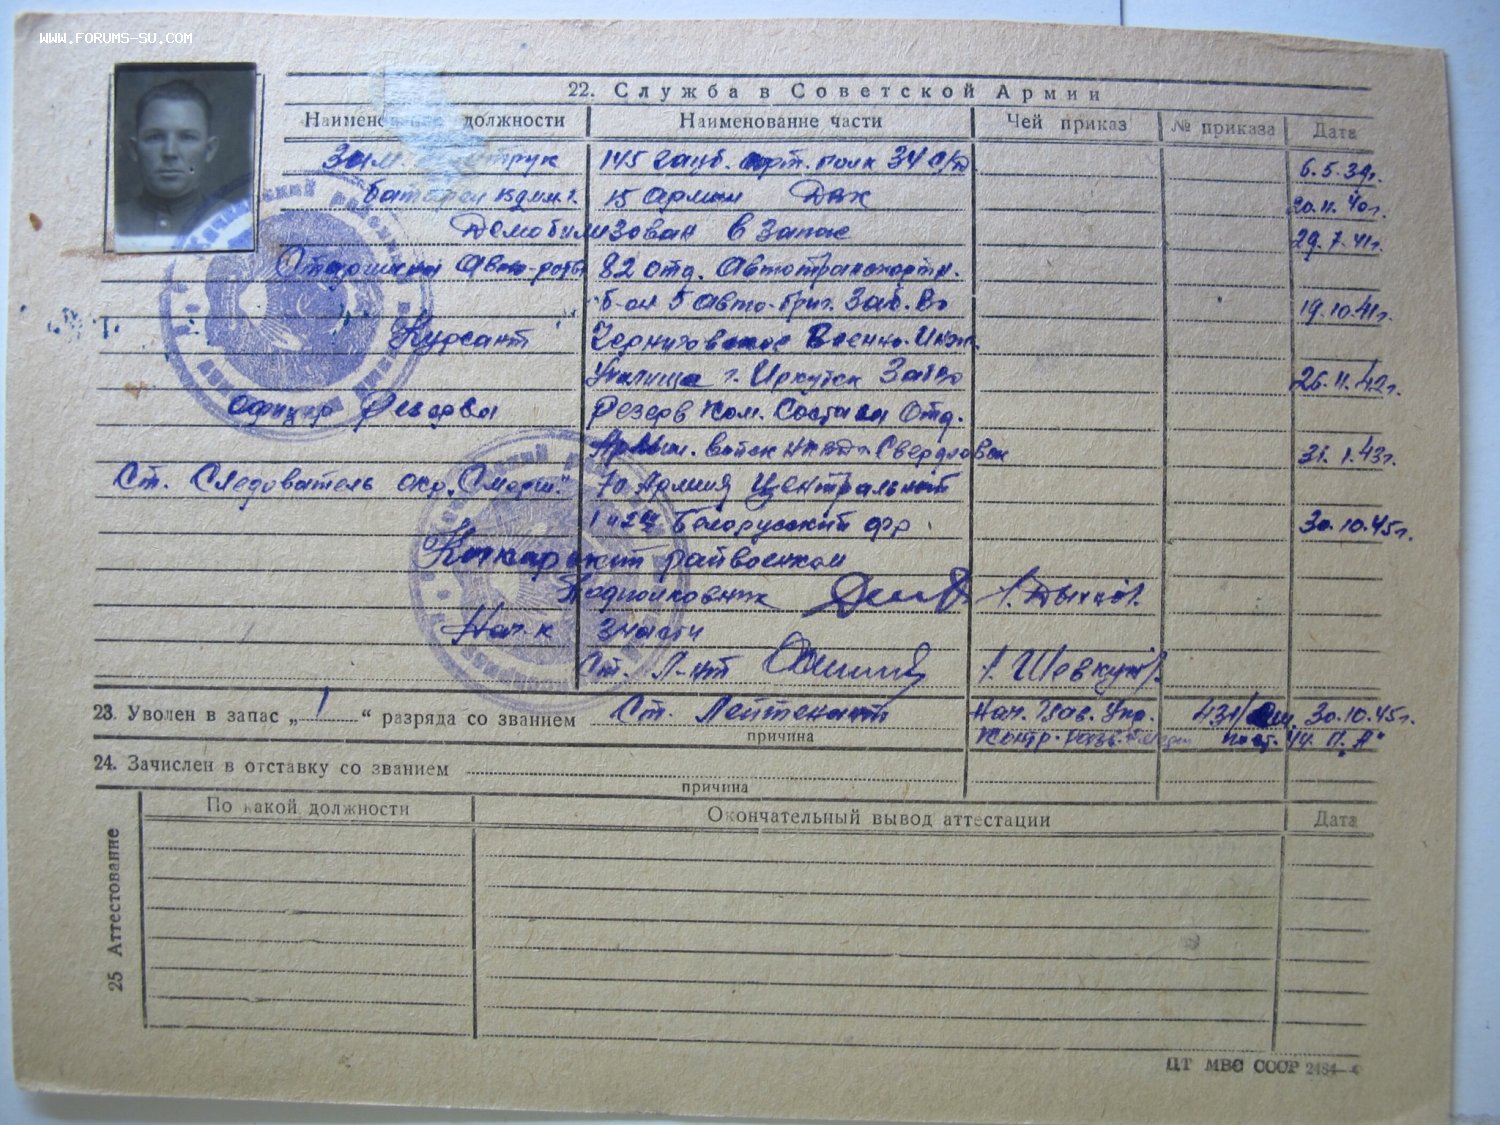 WWW.FORUMS-SU.COM
22. Служба в Советской Армии
Наименование должности Наименование части Чей приказ № приказа Дата
Зам. Политрук 145 гауб. арт. полк 34 с/д 6.5.39г.
батареи 152 м.м. г. 15 Армии 20.11.40г.
Демобилизован в запас 29.7.41г.
Старшина Авто-роты 82 отд. Автотранспортн.
б-он 5 авто-бриг. Заб. Во 19.10.41г.
Курсант Черниговское Военно-Инж.
Училища г. Иркутск ЗабВо 26.11.42г.
Офицер Резерва Резерв Ком. Состава Отд.
Армии. войск НКВД г. Свердловск 31.1.43г.
Ст. Следователь окр. „Смерш." 70 Армия Центральный
1 и 2й Белорусский фр. 30.10.45г.
райвоенком
Подполковник
Нач-к 3 части
Ст. Л-нт /Шевкун/.
23. Уволен в запас „ 1 “ разряда со званием Ст. Лейтенант Нач. Глав. Упр. 431/ 30.10.45г.
причина Контр-разв. ч. П. „А"
24. Зачислен в отставку со званием
причина
25 Аттестование
По какой должности Окончательный вывод аттестации Дата
ЦТ МВС СССР 2484—